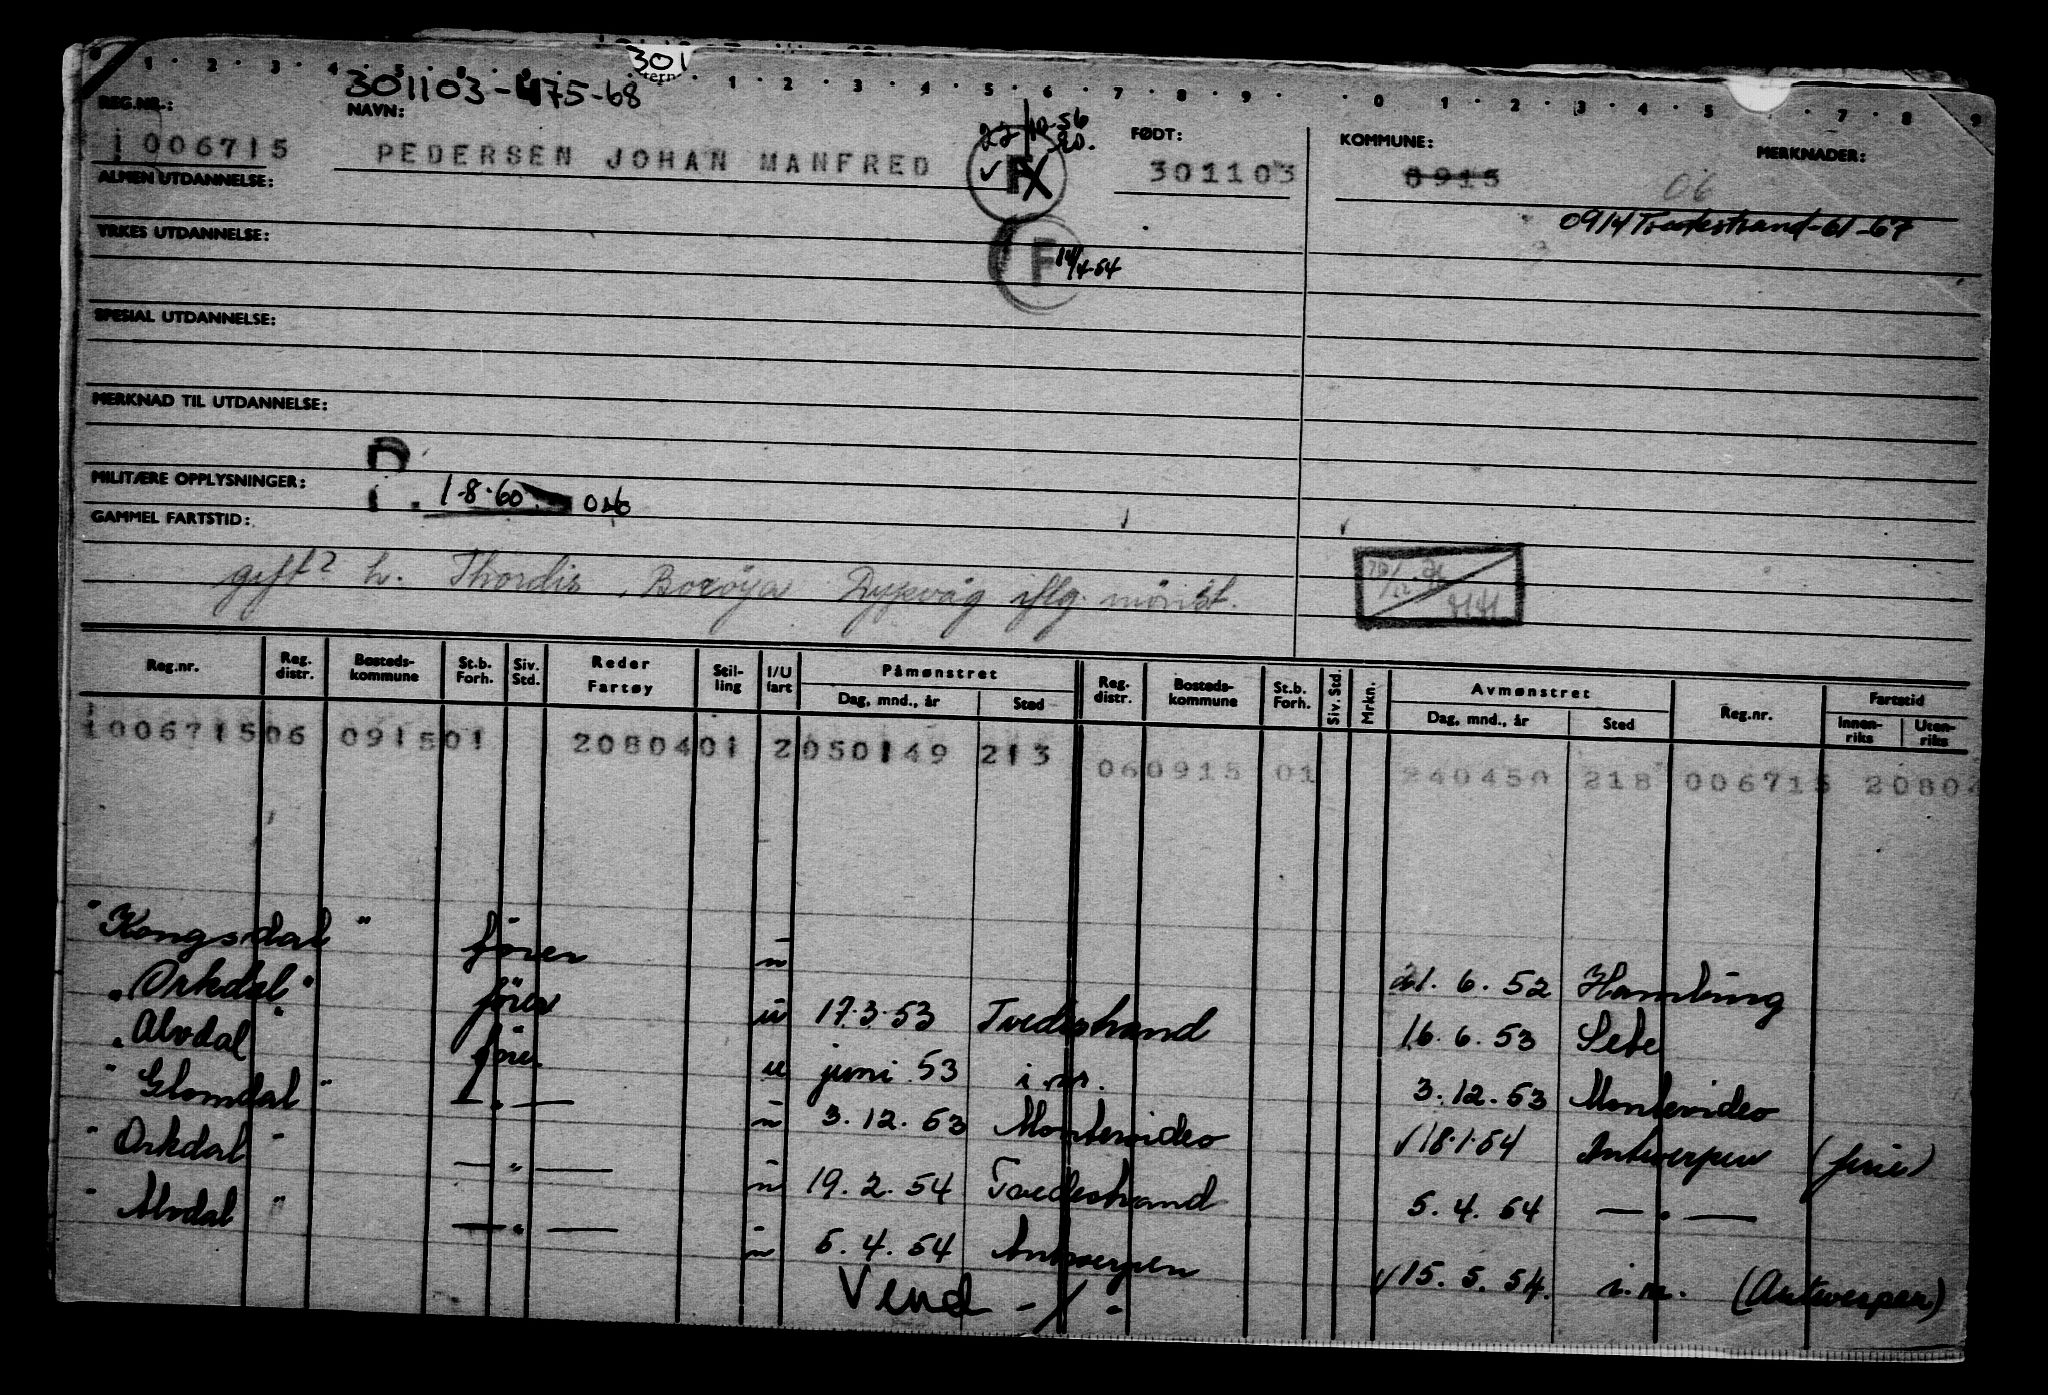 301
301103-475-68
REG.NR.: NAVN: FØDT: KOMMUNE: MERKNADER:
i 006715 PEDERSEN JOHAN MANFRED 301103 0915 06
0914 Tvedestrand-61-67
ALMEN UTDANNELSE:
YRKES UTDANNELSE:
F 14/4-54
SPESIAL UTDANNELSE:
MERKNAD TIL UTDANNELSE:
MILITÆRE OPPLYSNINGER:
1-8-60
GAMMEL FARTSTID:
gift? h. Thordis, Borøya Dypvåg iflg. mønst.
Reg.nr. Reg. distr. Bosteds-kommune St.b. Forh. Siv. Std. Reder Fartøy Stil-ling I/U fart Påmønstret Dag, mnd., år Sted Reg. distr. Bosteds-kommune St.b. Forh. Siv. Std. Mrkn. Avmønstret Dag, mnd., år Sted Reg.nr. Fartstid Innen-riks Uten-riks
i00671506 091501 2080401 2050149 213 060915 01 240450 218 006715 2080
"Kongsdal" förer u 1. 6. 52 Hamburg
"Orkdal" förer u 17.3.53 Tvedestrand 16. 6. 53 Sete
"Alvdal" förer u juni 53 i.m. 3. 12. 53 Montevideo
"Glomdal" — " — u 3. 12. 53 Montevideo √18.1.54 Antwerpen (ferie)
"Orkdal" — " — u 19. 2. 54 Tvedestrand 5. 4. 54 — " —
"Alvdal" — " — u 5. 4. 54 Antwerpen √15. 5. 54. i.m. (Antwerpen)
Vend -/-